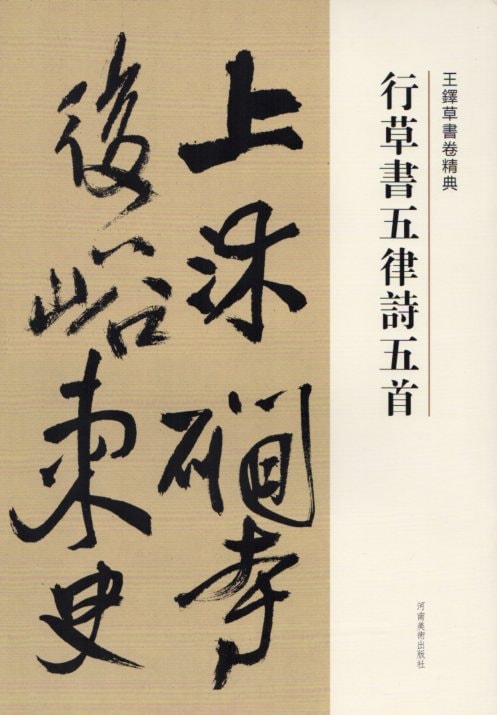 王鐸草書卷精典
行草書五律詩五首
河南美術出版社
上沐磵寺
後峪東